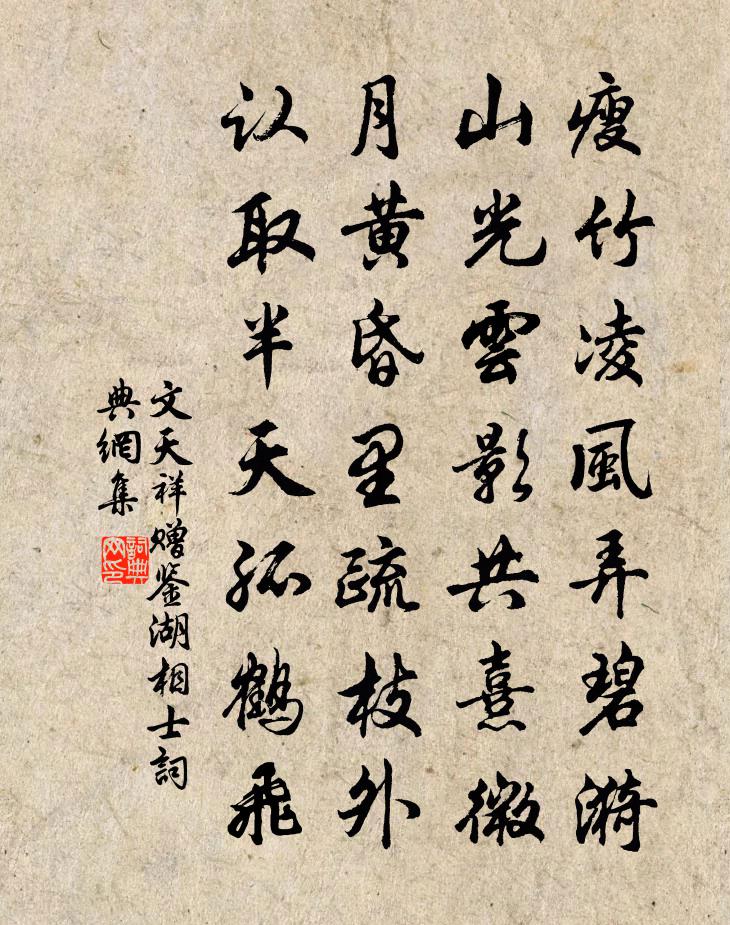 瘦竹凌風弄碧漪
山光雲影共熹微
月黄昏里疏枝外
认取半天孤鶴飛
文天祥赠鉴湖相士詞
典網集
詞典網印